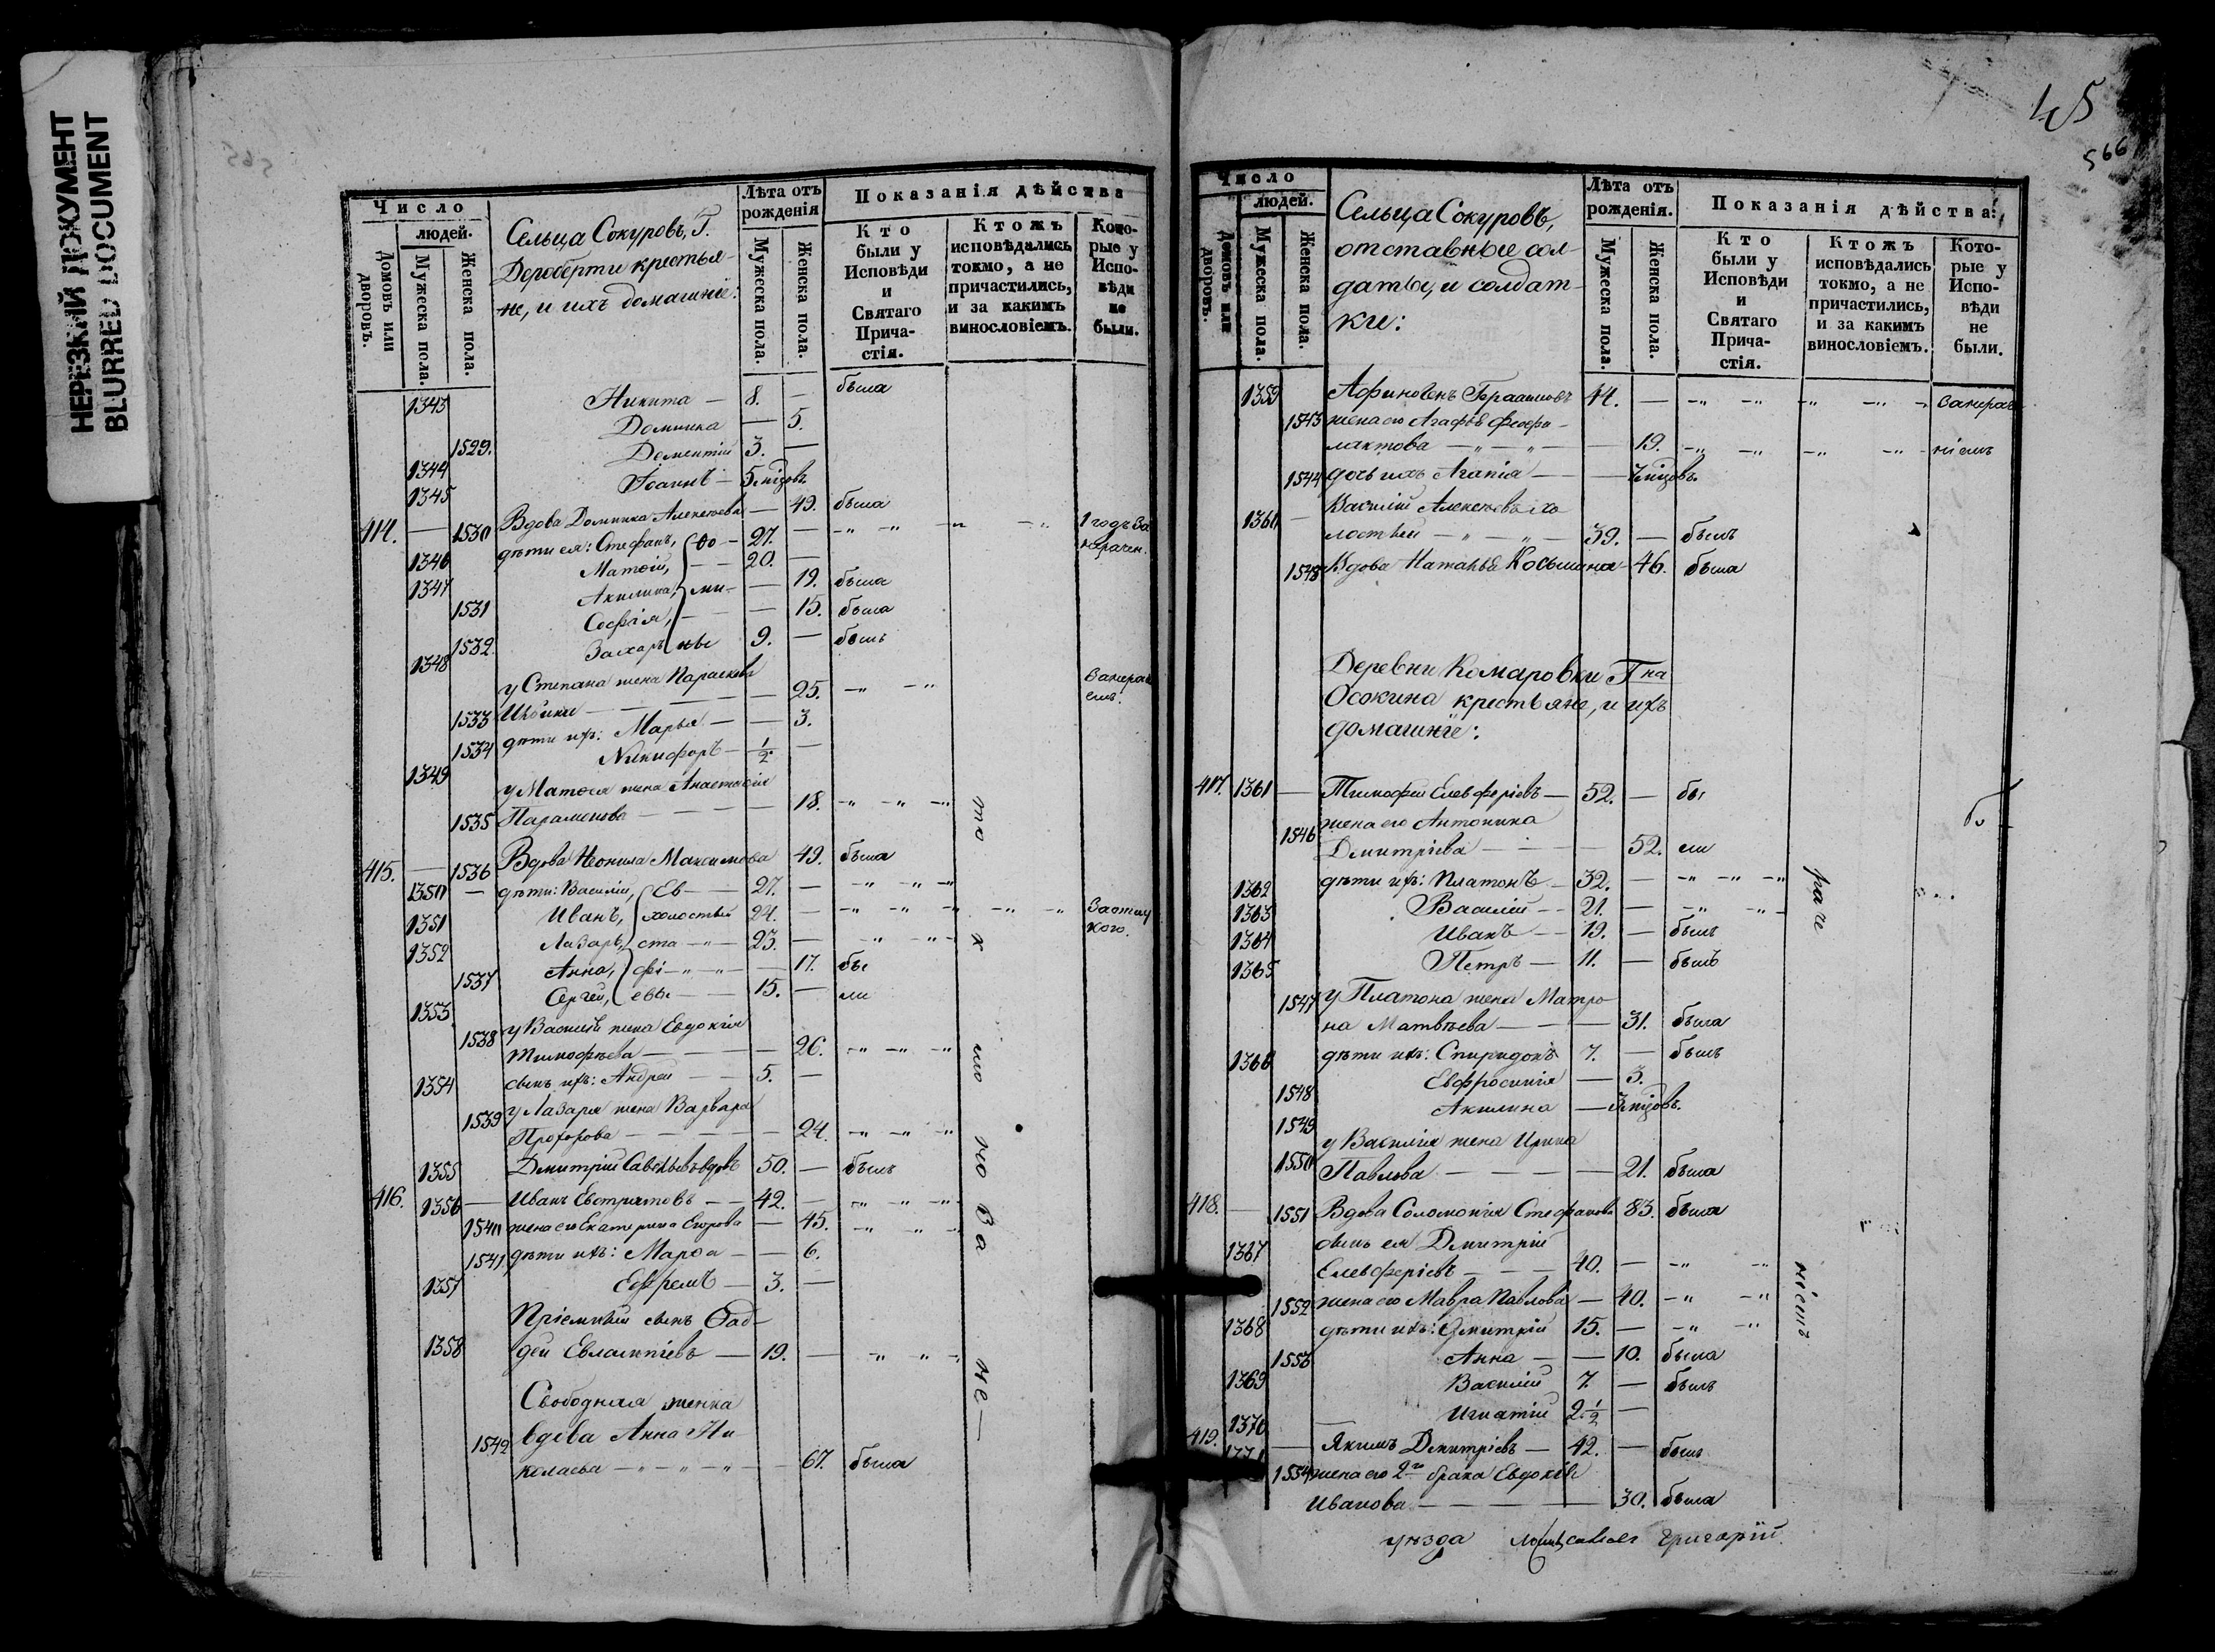 НЕРЕЗКИЙ ДОКУМЕНТ
BLURRED DOCUMENT
565
Число
людей.
Домовъ или дворовъ.
Мужеска пола.
Женска пола.
Сельца Сокуровъ, Г.
крестья-
не, и ихъ домашніе:
Лѣта отъ рожденія
Мужеска пола.
Женска пола.
Показанія дѣйства
Кто были у Исповѣди и Святаго Прича-стія.
Ктожъ исповѣдались токмо, а не причастились, и за какимъ винословіемъ.
Кото-рые у Испо-вѣди не были.
1343 Никита — 8. — была
1529. Домника — 5.
1344 Дементій 3. —
1345 Іоаннъ — 5 мѣцовъ
414. — 1530 Вдова Домника Алексѣева — 49. была
1346 дѣти ея: Стефанъ, Ѳо — 27. — 1 годъ за
1347 Матѳій, — 20. —
1531 Акилина, ми- — 19. была
1532 Софія, — 15. была
1348 Захаръ ны 9. — былъ
у Степана жена Параскева
1533 — 25.
1534 дѣти ихъ: Марья — 3.
1349 Никифоръ — 1/2 —
у Матѳея жена Анастасія
1535 Параменова — 18.
415. — 1536 Вдова Неонила Максимова 49. была
1350 — дѣти: Василій, Ев — 27. —
1351 Иванъ, холостый 24. —
1352 Лазарь, ста — 23. —
1537 Анна, фі — 17. бы
1353 Сергей, евы — 15. — ли
1538 у Василія жена Евдокія
Тимофѣева — 26.
1354 сынъ ихъ: Андрей — 5. —
1539 у Лазаря жена Варвара
Прохорова — 24.
1355 Дмитрій Савельевъ вдовъ 50. — былъ
416. 1356 — Иванъ Евстратовъ — 42. —
1540 жена его Екатерина Егорова — 45.
1541 дѣти ихъ: Марѳа — 6.
1357 Ефремъ — 3. —
Пріемный сынъ Ѳад-
1358 дей Евлампіевъ — 19. —
Свободная женка
1542 вдова Анна Ни
колаева — 67. была
45
566
Число
людей.
Домовъ или дворовъ.
Мужеска пола.
Женска пола.
Сельца Сокуровъ,
отставные сол-
даты, и солдат-
ки:
Лѣта отъ рожденія.
Мужеска пола.
Женска пола.
Показанія дѣйства:
Кто были у Исповѣди и Святаго Прича-стія.
Ктожъ исповѣдались токмо, а не причастились, и за какимъ винословіемъ.
Кото-рые у Испо-вѣди не были.
1359 44. —
1543 жена его Агафья Феофи-
лактова — 19. ніемъ
1544 дочь ихъ Агапія —
1360 — Василій Алексѣевъ хо
лостый — 39. — былъ
1545 Вдова Наталья Косьмина — 46. была
Деревни Комаровки Гна
Осокина крестьяне, и ихъ
домашніе:
417. 1361 — Тимофей Елевферіевъ — 52. — бы
1546 жена его Антонина
Дмитріева — 52. ли
1362 дѣти ихъ: Платонъ — 32. —
1363 Василій — 21. —
1364 Иванъ — 19. — былъ
1365 Петръ — 11. — былъ
1547 у Платона жена Матро
на Матвѣева — 31. была
1366 дѣти ихъ: Спиридонъ 7. — былъ
1548 Евфросинія — 3.
1549 Акилина — мѣцовъ.
у Василія жена Ирина
1550 Павлова — 21. была
418. — 1551 Вдова Соломонія Стефанова 83. была
1367 сынъ ея Дмитрій
Елевферіевъ — 40. —
1552 жена его Мавра Павлова — 40.
1368 дѣти ихъ: Дмитрій 15. —
1553 Анна — 10. была
1369 Василій 7. — былъ
1370 Игнатій 2 1/2 —
419. 1371 — Якимъ Дмитріевъ — 42. — былъ
1554 жена его 2го брака Евдокія
Иванова — 30. была
уѣзда Григорій